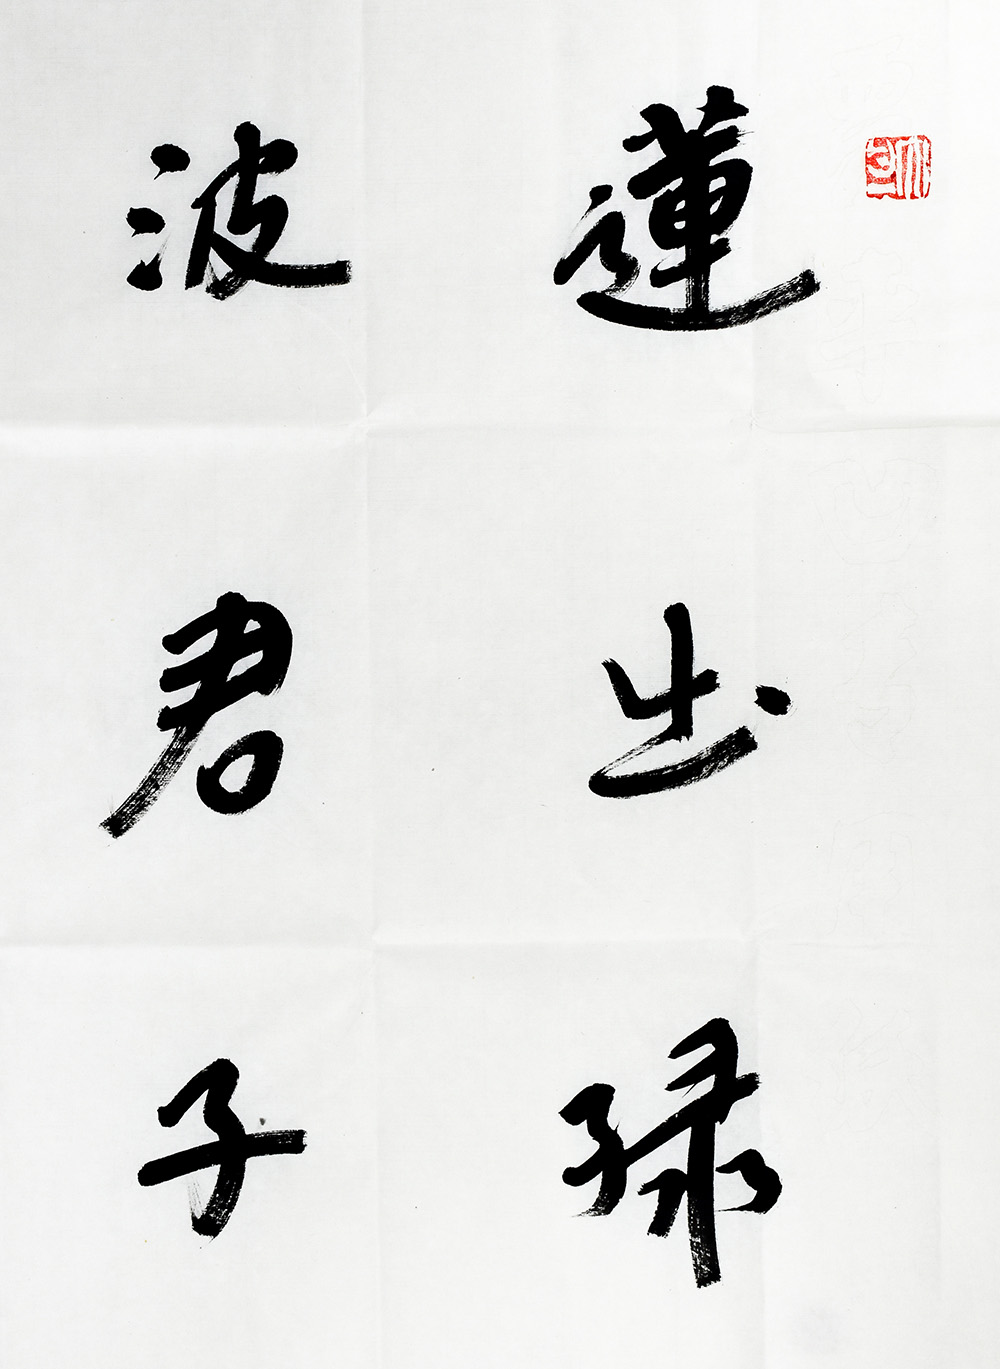 蓮出緑
波君子